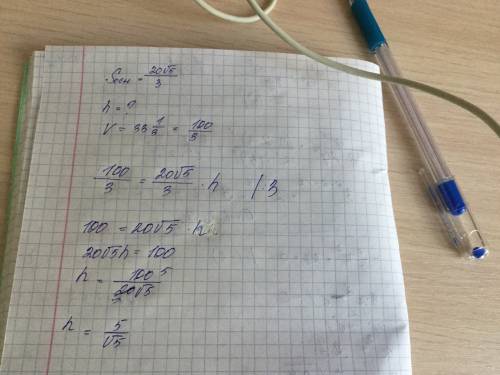 Sосн = 20√5/3
h = ?
V = 33 1/3 = 100/3
100/3 = 20√5/3 · h | · 3
100 = 20√5 · h
20√5h = 100
h = 100 5/20√5
h = 5/√5